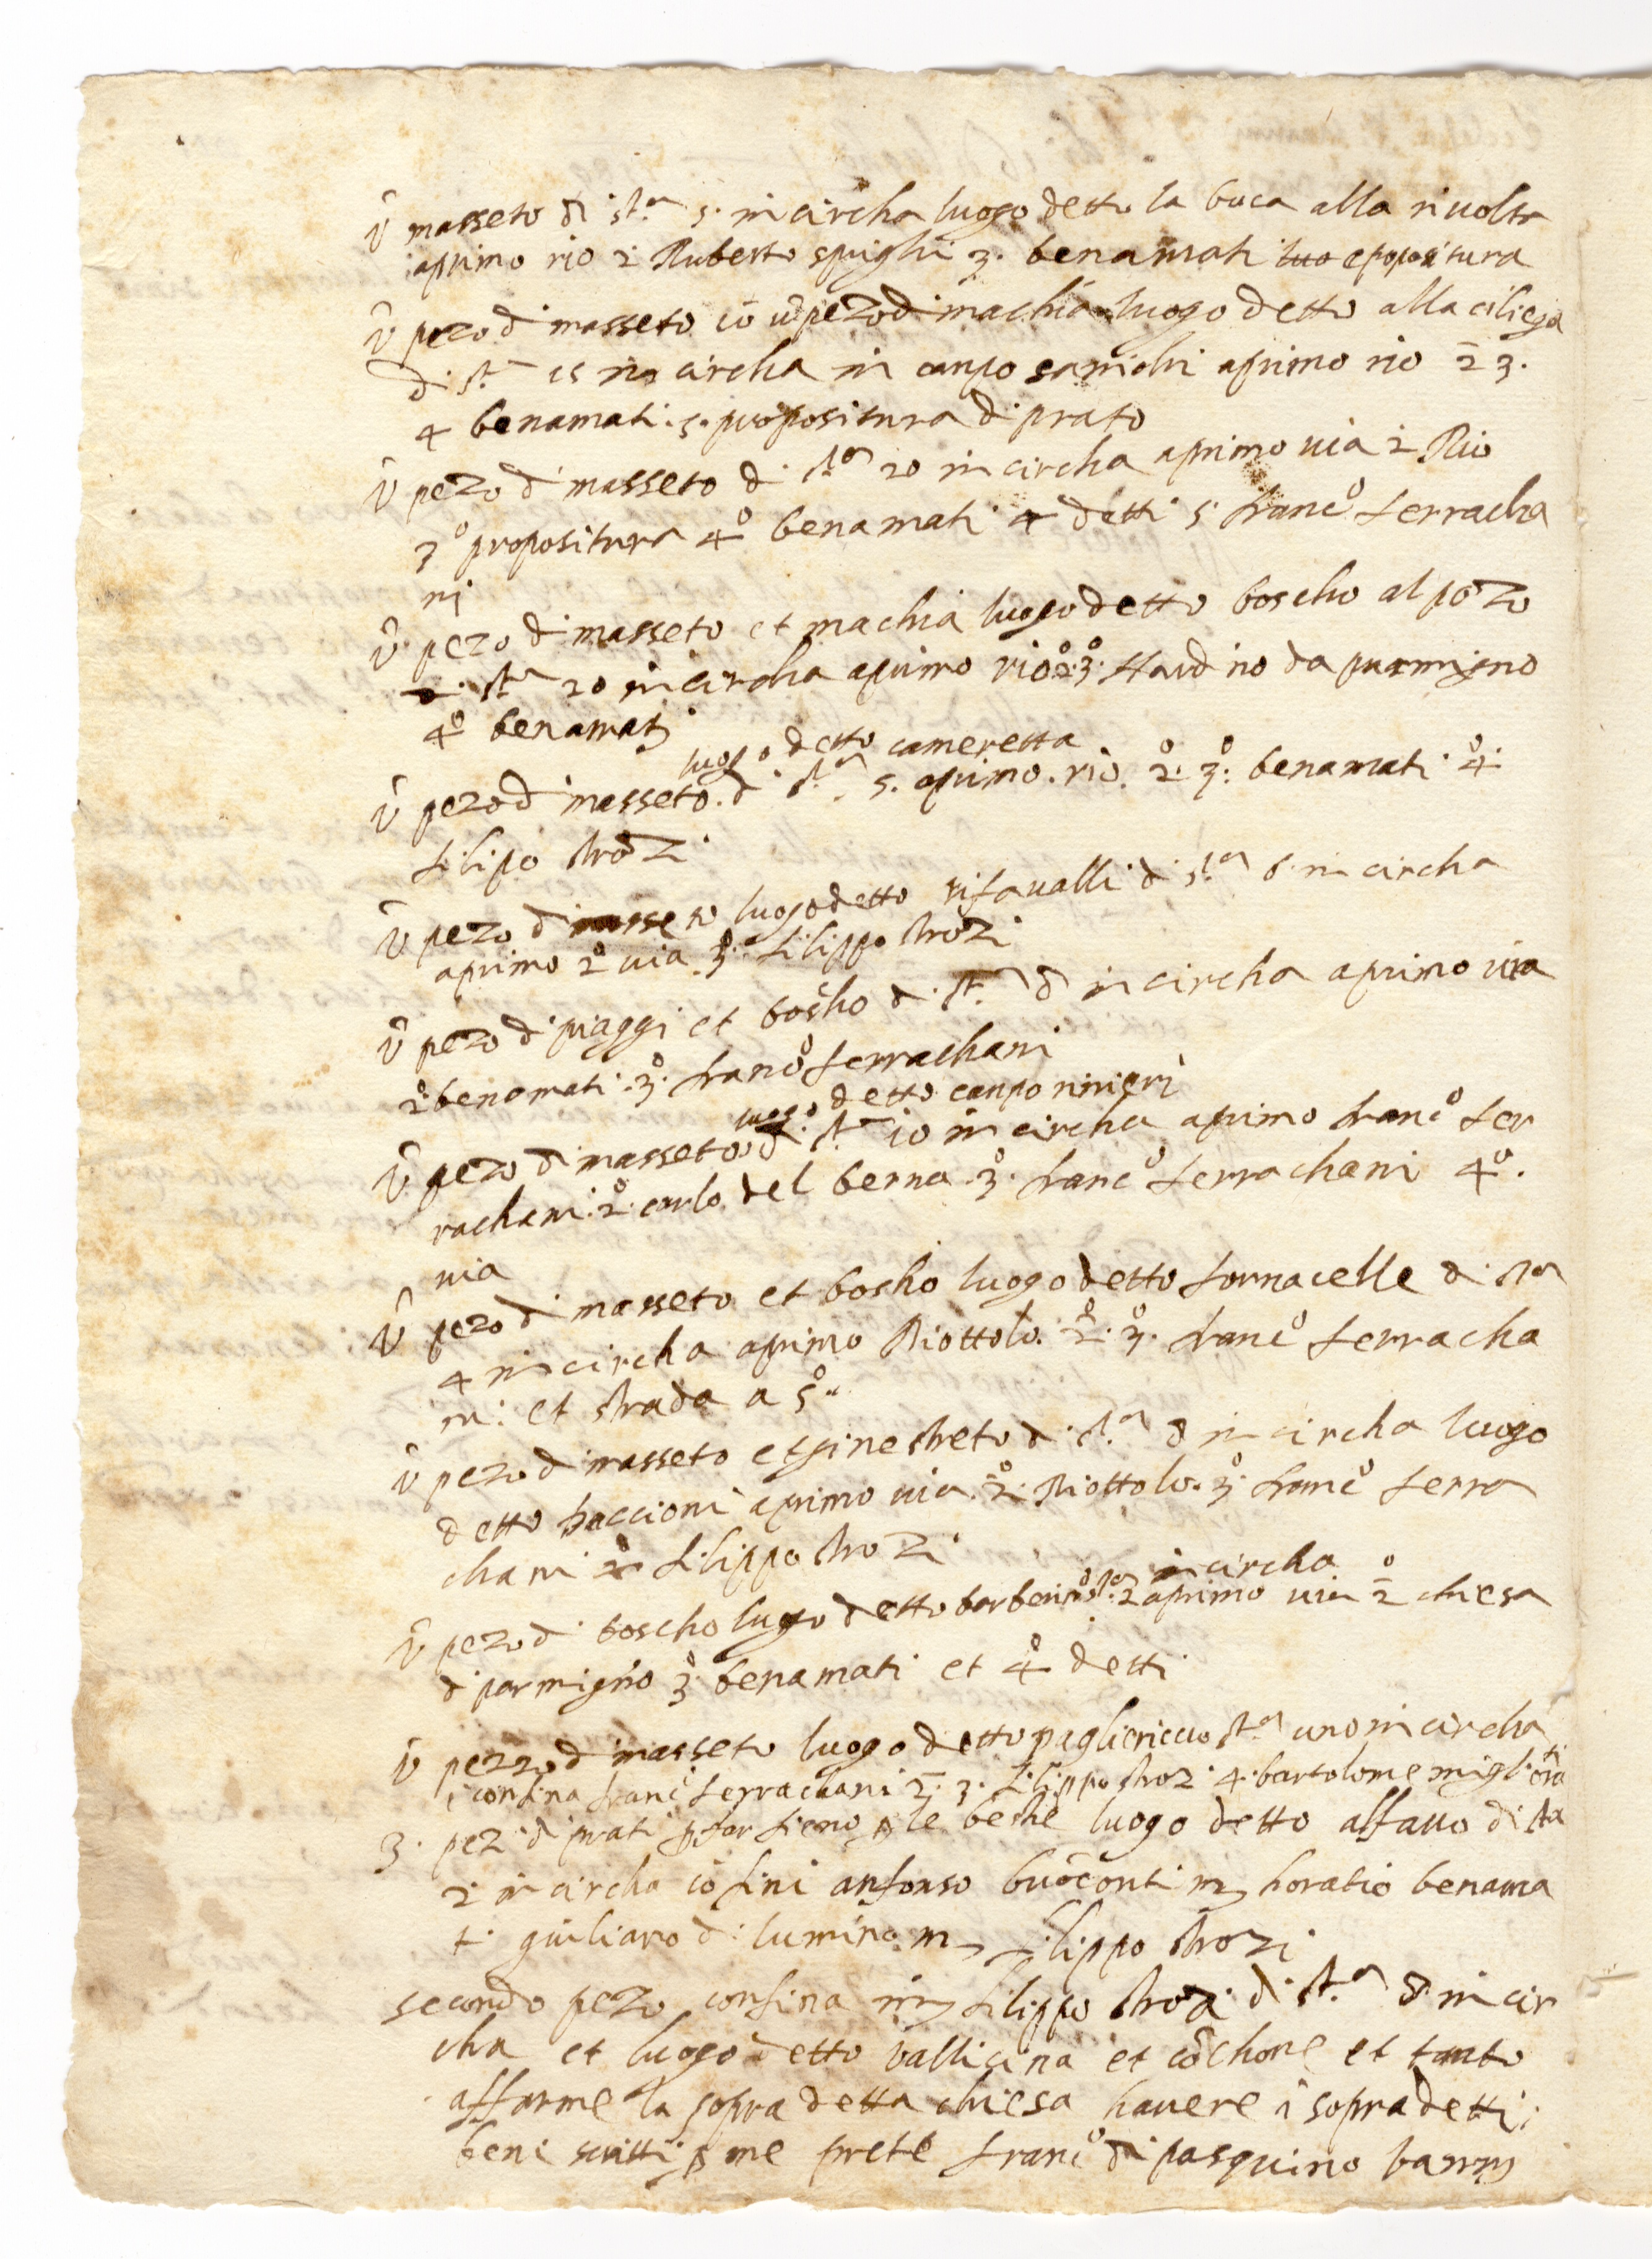 ũ masseto di st.a 5. in circha luogo detto la buca alla rivolta
aprimo rio 2 Ruberto spighi 3. benamati epopositura
ũ pezo di masseto cō ũ pezo di machia luogo detto alla ciliega
di st.a 15 in circha in canpo aprimo rio 2 3.
4 benamati. 5. propositura di prato
ũ pezo di masseto di st.a 20 in circha aprimo via 2 Rio
3º propositura 4º benamati 4 detti 5 francº ferracha
ni
ũ pezo di masseto et machia luogo detto boscho al pozo
st.a 20 in circha aprimo rio 2º. 3º. Nardino da parmigno
4º benamati
luogo detto cameretta
ũ pezo di masseto. di st.a 5. aprimo. rio. 2º. 3º: benamati. 4º.
filipo strozi
ũ pezo di masseto luogo detto rifavalli di st.a 6. in circha
aprimo 2º via 3º. filippo strozi
ũ pezo di piaggi et boscho di st.a 8 in circha aprimo via
2º benamati. 3º. francº ferrachani
luogo detto canpo rinieri
ũ pezo di masseto di st.a 10 in circha aprimo francº fer
rachani. 2º. carlo del berna. 3º. francº ferrachani 4º.
via
ũ pezo di masseto et bosho luogo detto fornacelle di st.a
4 in circha aprimo Riottolo. 2º. 3º. francº ferracha
ni: et strada a 5º.
ũ pezo di masseto et ginestreto di st.a 8 in circha luogo
detto baccioni aprimo via. 2º. Riottolo. 3º francº ferra
chani filippo strozi
in circha
ũ pezo di boscho lugo detto barberino st.a 2 aprimo via 2º chiesa
di parmigno 3º benamati et 4º detti
ũ pezzo di masseto luogo detto pagliericcio st.a uno in circha
confina francº ferrachani 2. 3. filippo strozi 4. bartolome migliorati
3. pezi di prati p far fieno p le beshe luogo detto alfavo di sta
2 in circha cōfini anfonso buōconti m horatio benama
ti giuliano di lumino m filippo strozi
secondo pezo confina m filippo strozi di st.a 8 in cir
cha et luogo detto vallicina et cōchone et tanto
affarme la sopra detta chiesa havere i sopradetti
beni scritti p me prete francº di pasquino